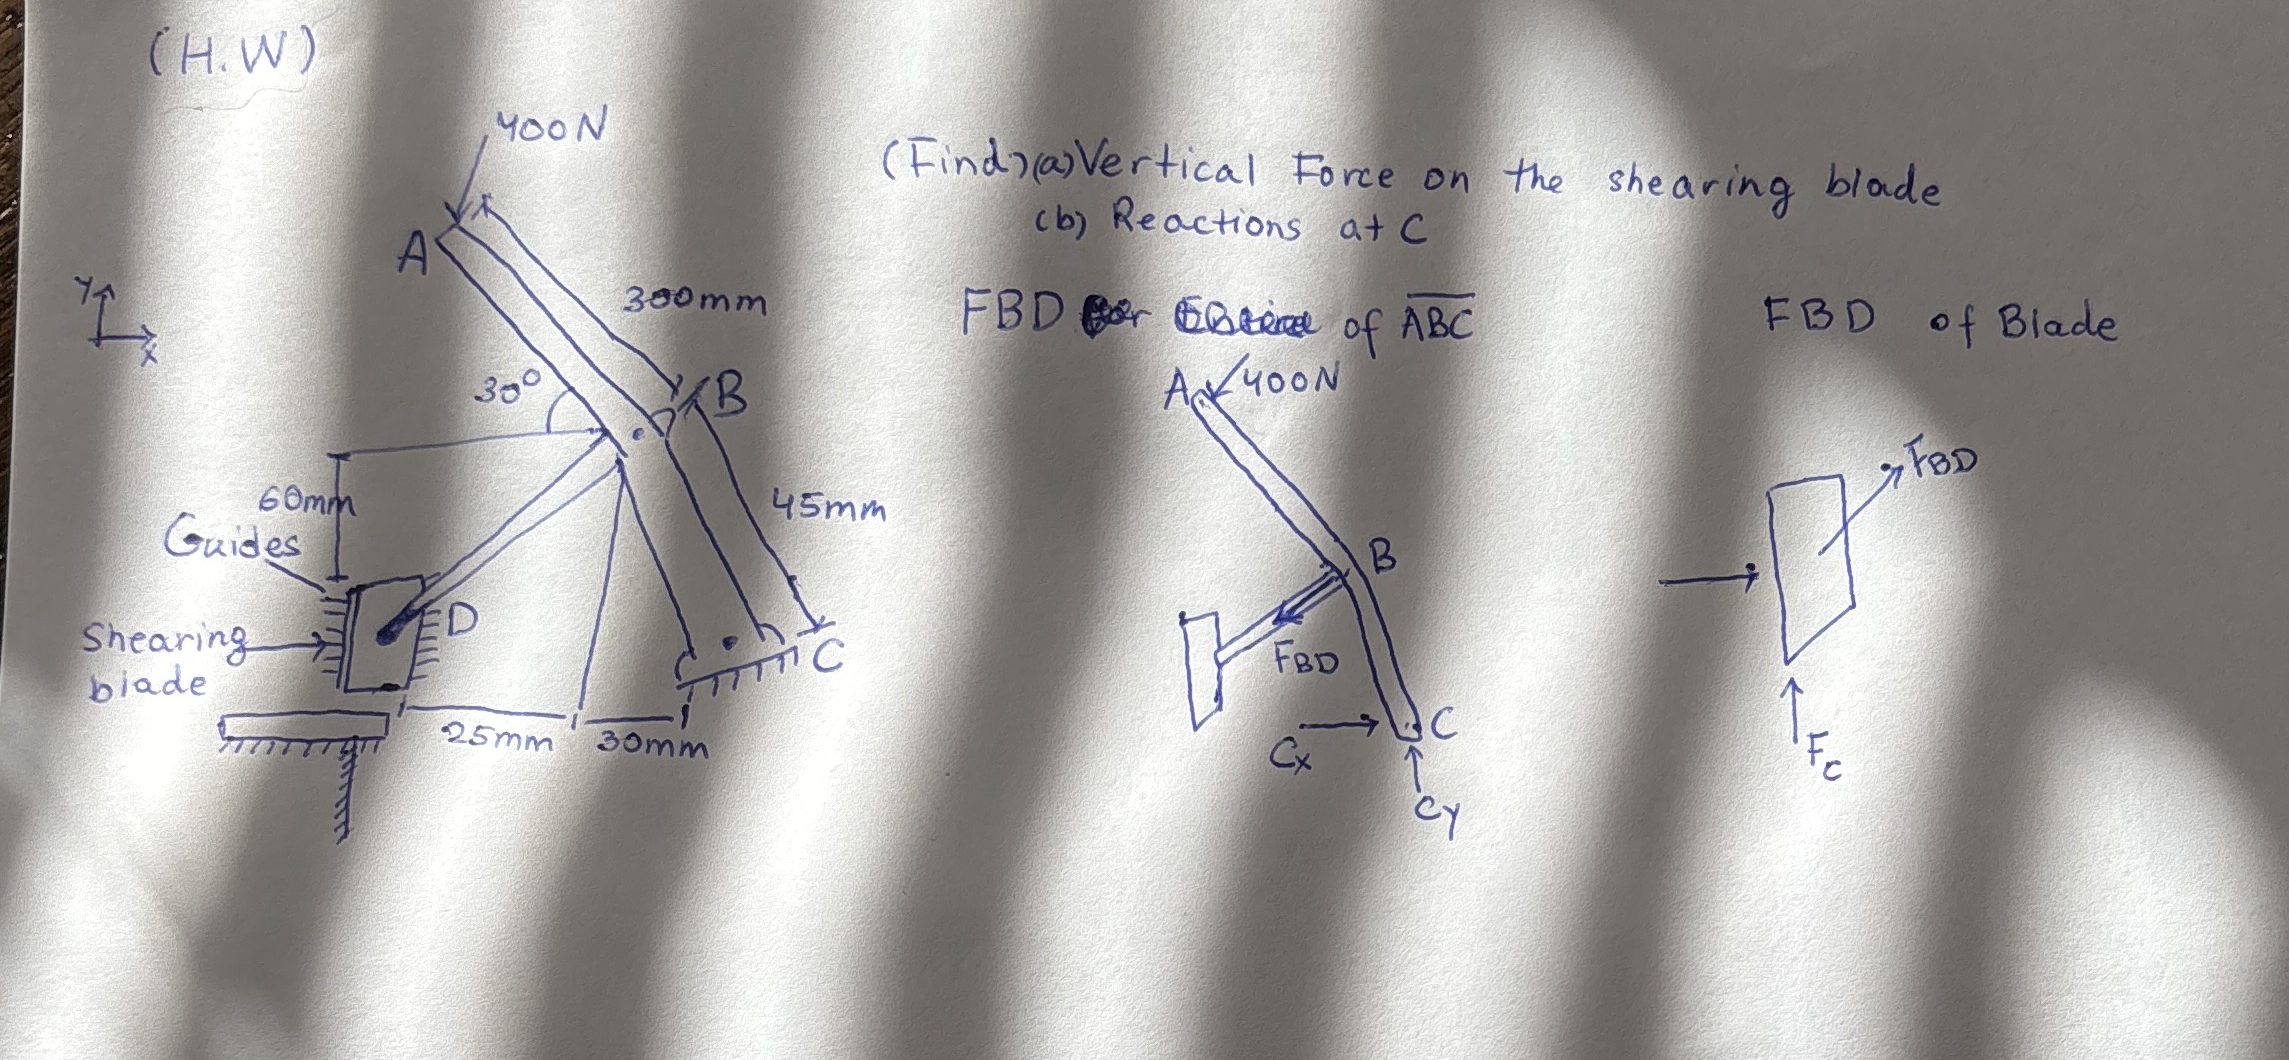 (H.W)
400N
A
300mm
Y
X
30°
B
60mm
45mm
Guides
D
Shearing
blade
C
25mm
30mm
(Find)(a)Vertical Force on the shearing blade
(b) Reactions at C
FBD of ABC
A
400N
B
FBD
Cx
C
Cy
FBD of Blade
FBD
Fc